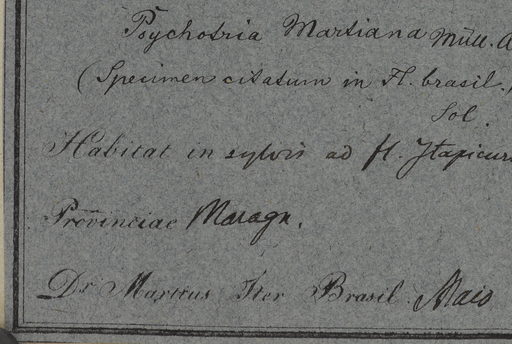 Psychotria Martiana Müll. A
(Specimen citatum in Fl. brasil.
Sol.
Habitat in sylvis ad fl. Itapicur
Provinciae Maragn.
Dr. Martius Iter Brasil. Maio